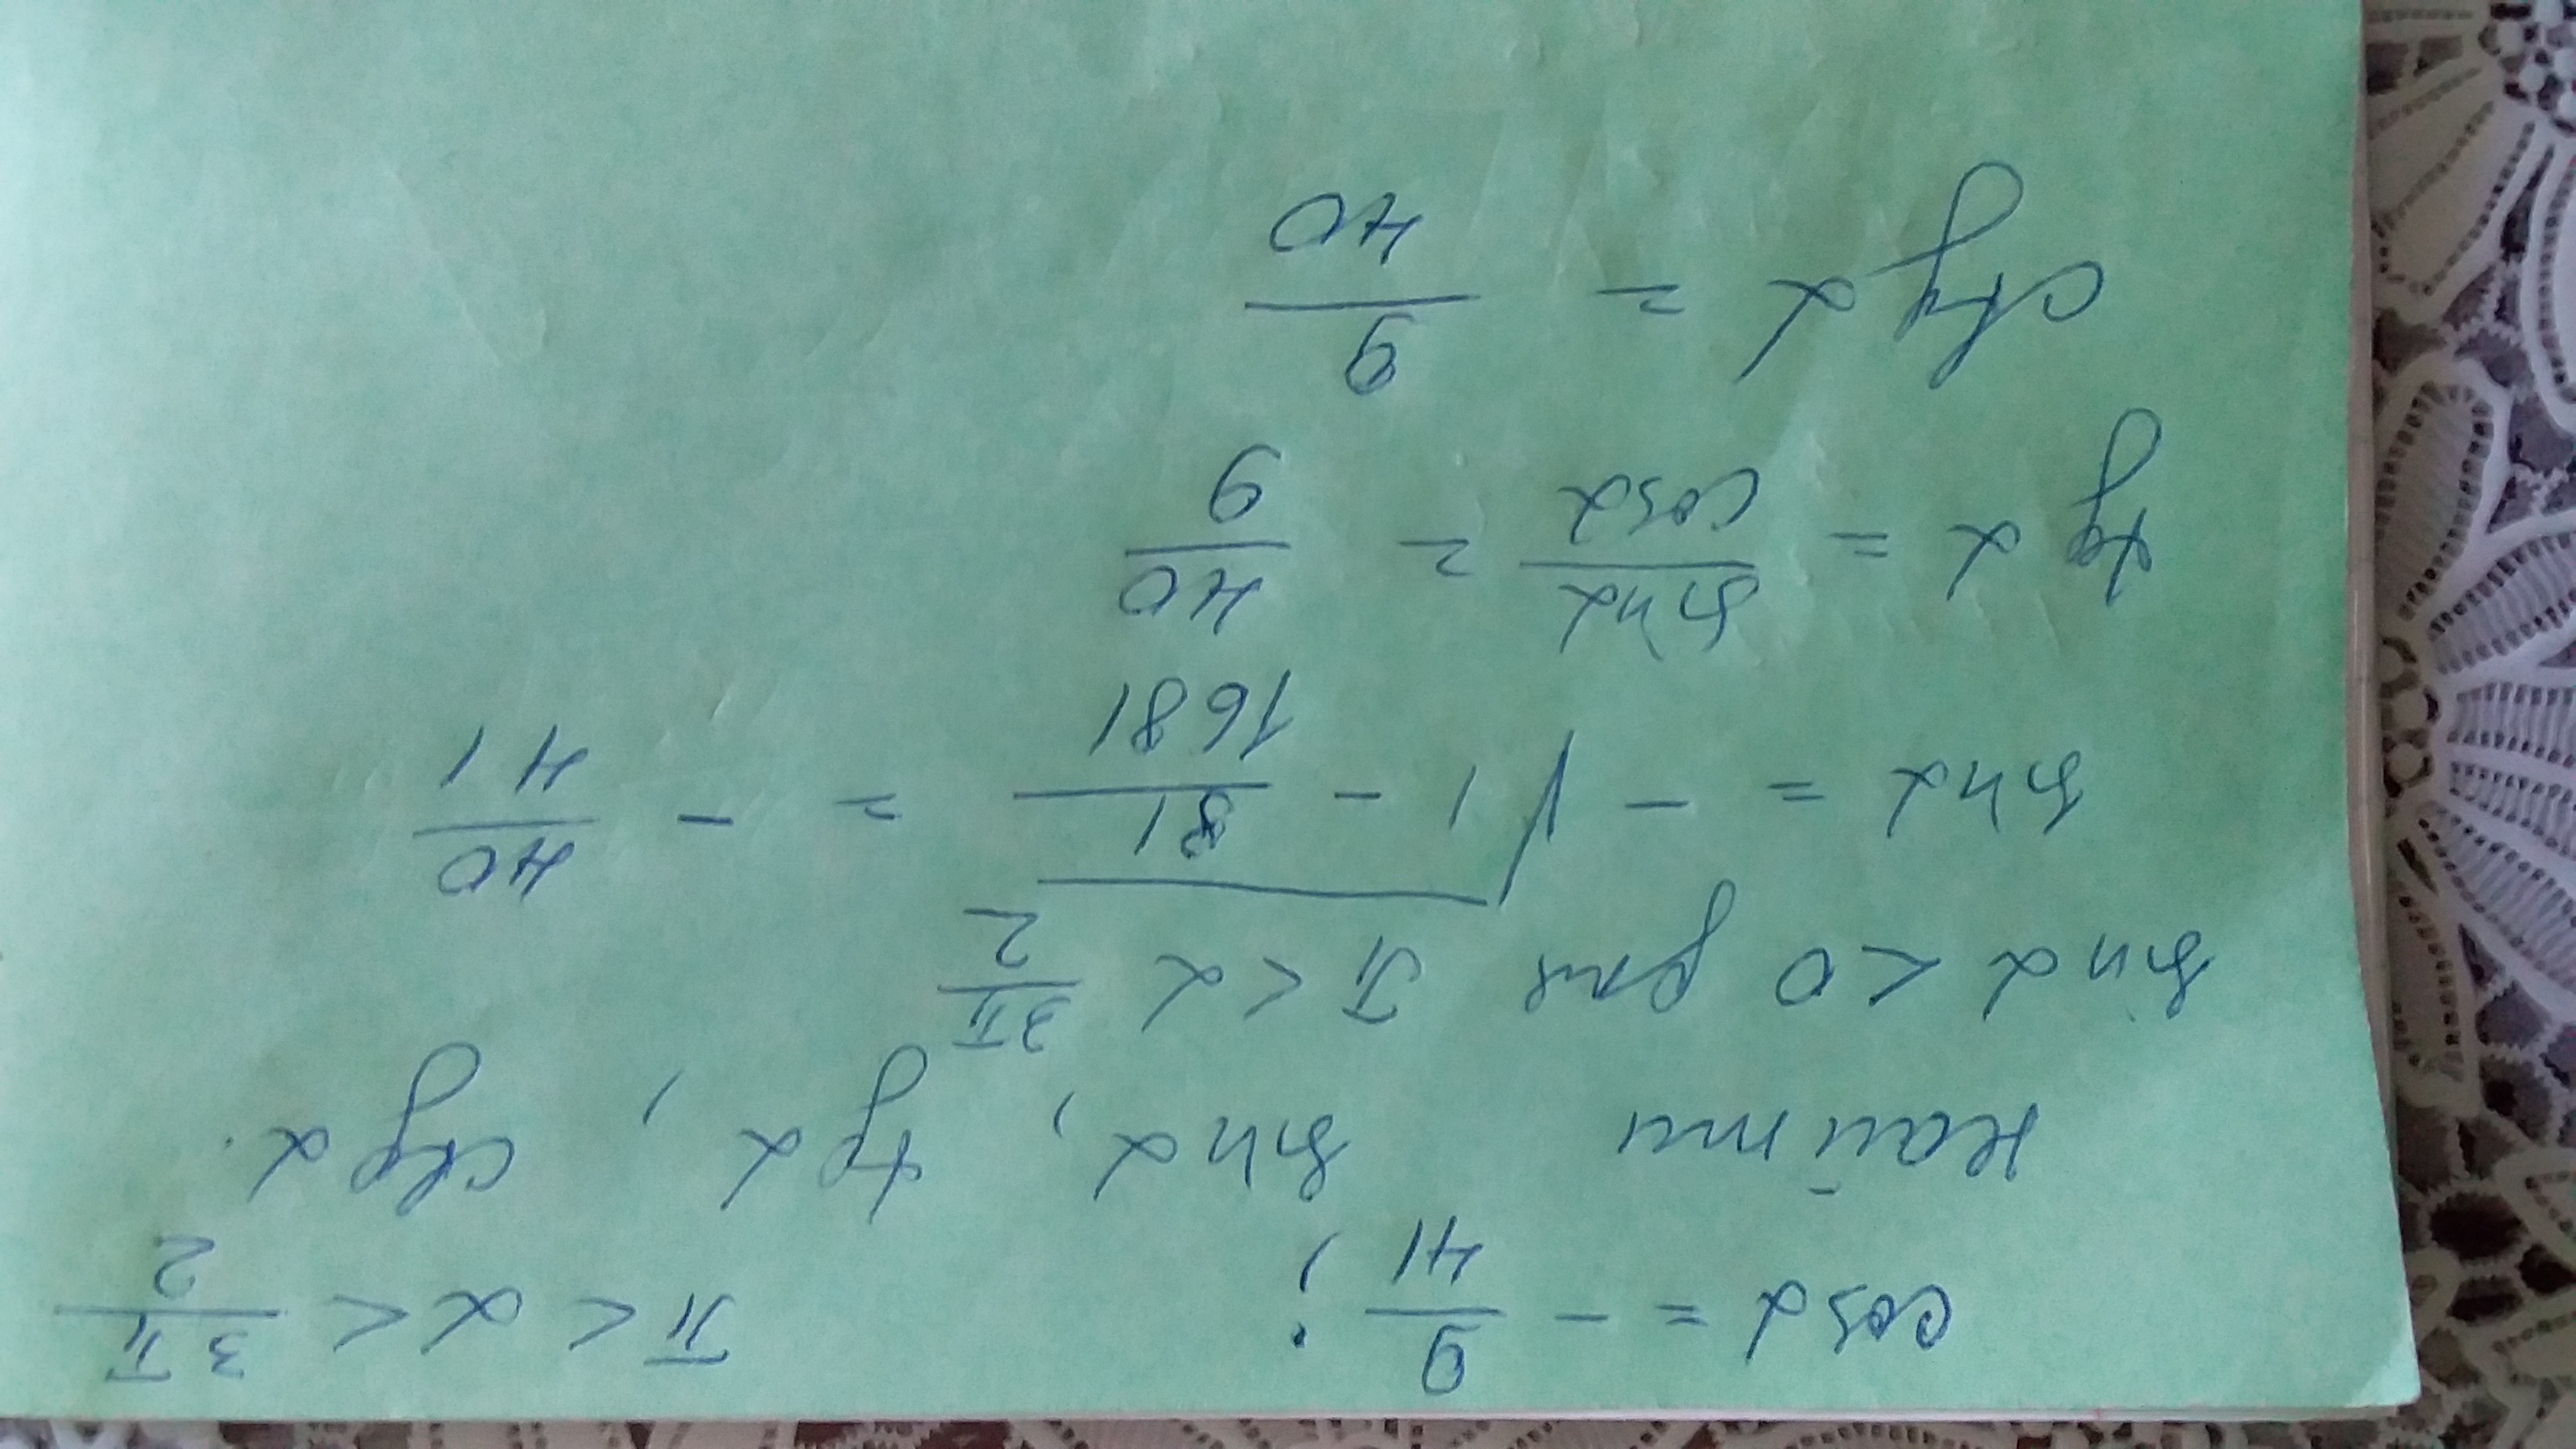 cos α = - 9/41; π < α < 3π/2
найти sin α, tg α, ctg α.
sin α < 0 для π < α 3π/2
sin α = - √(1 - 81/1681) = - 40/41
tg α = sin α/cos α = 40/9
ctg α = 9/40